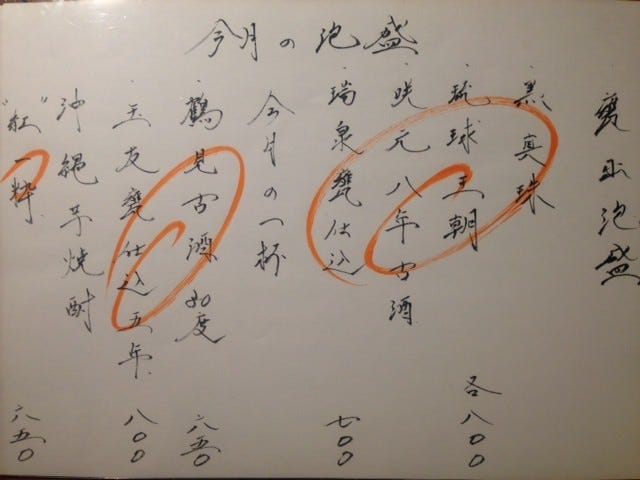 今月の泡盛
甕出泡盛
・黒真珠
・琉球王朝 各八〇〇
・咲元八年古酒
・瑞泉甕仕込 七〇〇
今月の一杯
・鶴見古酒 40度 六五〇
・玉友甕仕込五年 八〇〇
沖縄芋焼酎
"紅一粋" 六五〇